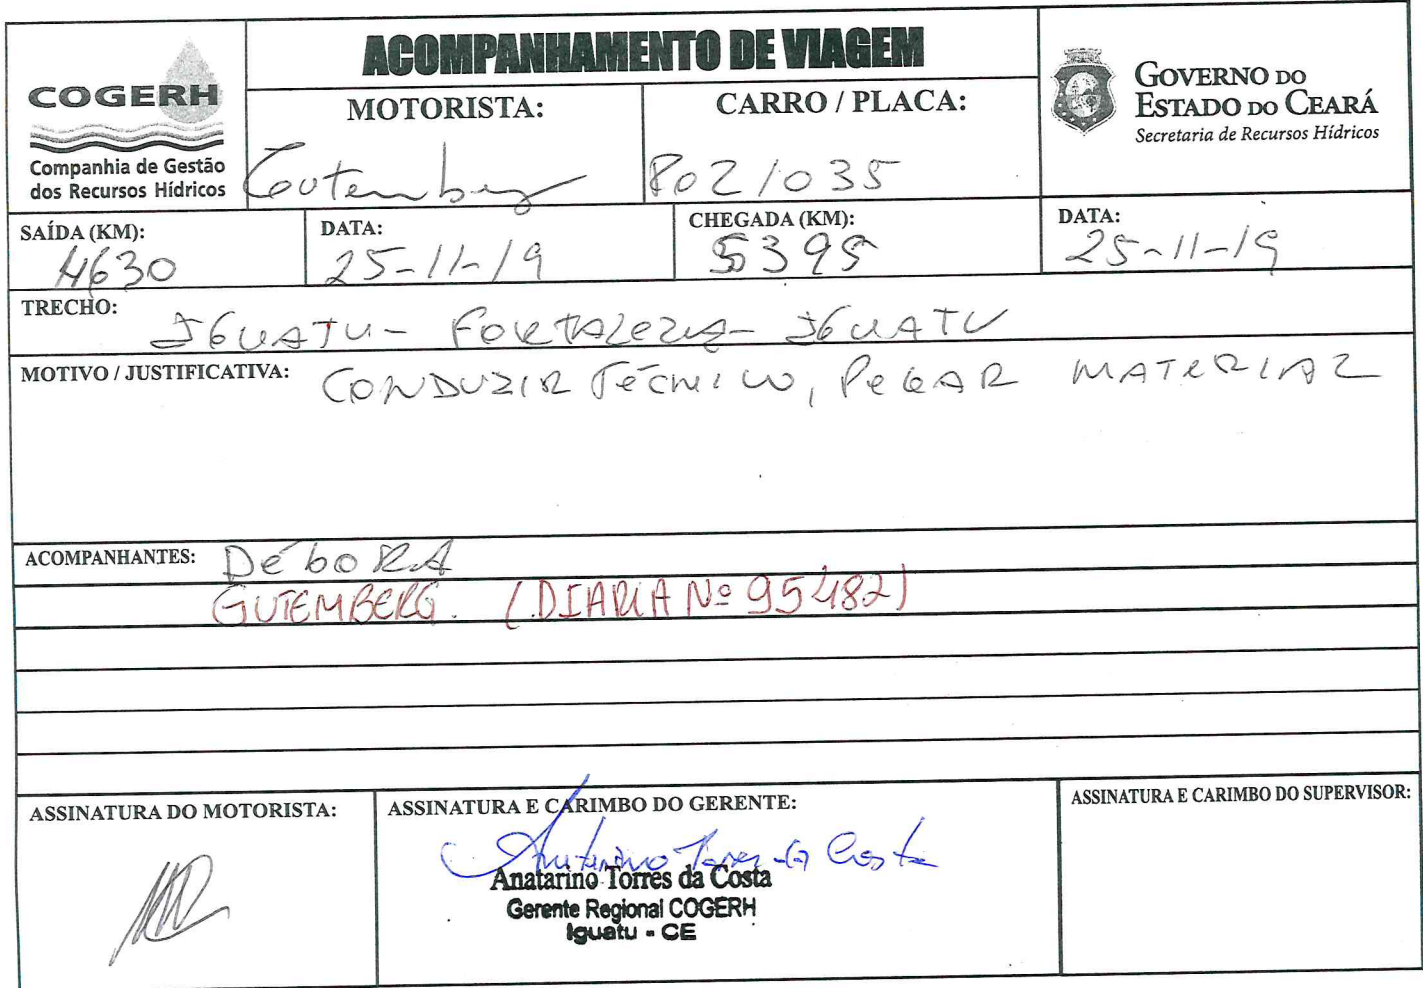 COGERH
Companhia de Gestão
dos Recursos Hídricos
ACOMPANHAMENTO DE VIAGEM
MOTORISTA:
Gutemberg
CARRO / PLACA:
802/035
GOVERNO DO
ESTADO DO CEARÁ
Secretaria de Recursos Hídricos
SAÍDA (KM):
4630
DATA:
25-11-19
CHEGADA (KM):
5395
DATA:
25-11-19
TRECHO: IGUATU - FORTALEZA - IGUATU
MOTIVO / JUSTIFICATIVA: CONDUZIR TÉCNICO, PEGAR MATERIAL
ACOMPANHANTES: DÉBORA
GUTEMBERG. (DIARIA Nº 95482)
ASSINATURA DO MOTORISTA:
ASSINATURA E CARIMBO DO GERENTE:
Anatarino Torres da Costa
Anatarino Torres da Costa
Gerente Regional COGERH
Iguatu - CE
ASSINATURA E CARIMBO DO SUPERVISOR: